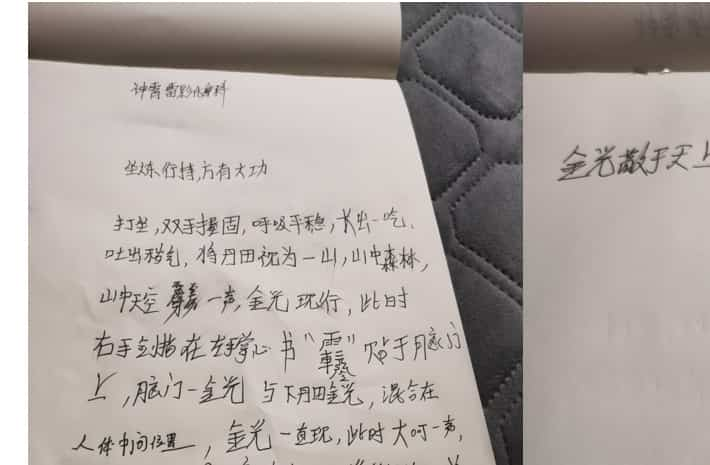 坐炼行持,方有大功
打坐,双手握固,呼吸平稳,大出一吃、
吐出秽气,将丹田视为一山,山中森林,
山中天空 一声,金光现行,此时
右手剑指在左手掌心书“ ”贴于脑门
上,脑门一金光与下丹田金光,混合在
人体中间位置,金光一直现,此时大呵一声,
金光散于天上